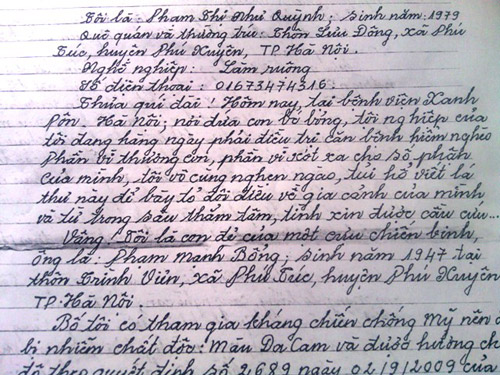 Tôi là: Phạm Thị Như Quỳnh; sinh năm: 1979
Quê quán và thường trú: Thôn Lưu Đông, xã Phú
Túc, huyện Phú Xuyên, TP. Hà Nội.
Nghề nghiệp: Làm ruộng
Số điện thoại: 01673474316
Thưa quí đài! Hôm nay, tại bệnh viện Xanh
Pôn, Hà Nội; nơi đứa con bé bỏng, tội nghiệp của
tôi đang hàng ngày phải điều trị căn bệnh hiểm nghèo
Phần vì thương con, phần vì xót xa cho số phận
của mình, tôi vô cùng nghẹn ngào, tủi hổ viết lá
thư này để bày tỏ đôi điều về gia cảnh của mình
và từ trong sâu thẳm tâm, tính xin được cầu cứu...
Vâng! Tôi là con đẻ của một cựu chiến binh,
ông là: Phạm Mạnh Bổng; sinh năm 1947 tại
thôn Trình Viên, xã Phú Túc, huyện Phú Xuyên
TP. Hà Nội.
Bố tôi có tham gia kháng chiến chống Mỹ nên
bị nhiễm chất độc: Màu Da Cam và được hưởng
độ theo quyết định số 2689 ngày 02/9/2009 của